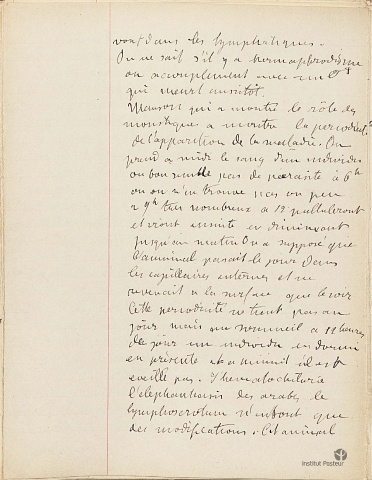 vont dans les lymphatiques.
On ne sait s'il y a hermaphrodisme
ou accouplement avec un ♂
qui meurt aussitôt.
Manson qui a montré le rôle des
moustiques a montré la periodicité
de l'apparition de la maladie. On
prend a midi le sang d'un individu
ou bon semble pas de parasite à 6h
on en trouve pas un peu
a 9h très nombreux a 12 pulluleront
et vont ensuite en diminuant
jusqu'au matin On a supposé que
l'animal passait le jour dans
les capillaires internes et ne
revenait a la surface que le soir
Cette periodicité ne tient pas au
jour mais au sommeil a 12 heures
de jour un individu endormi
en présente et a minuit s'il est
eveillé pas. L'hematochylurie
l'elephantiasis des arabes le
lymphoscrotum n'en sont que
des modifications. Cet animal
Institut Pasteur